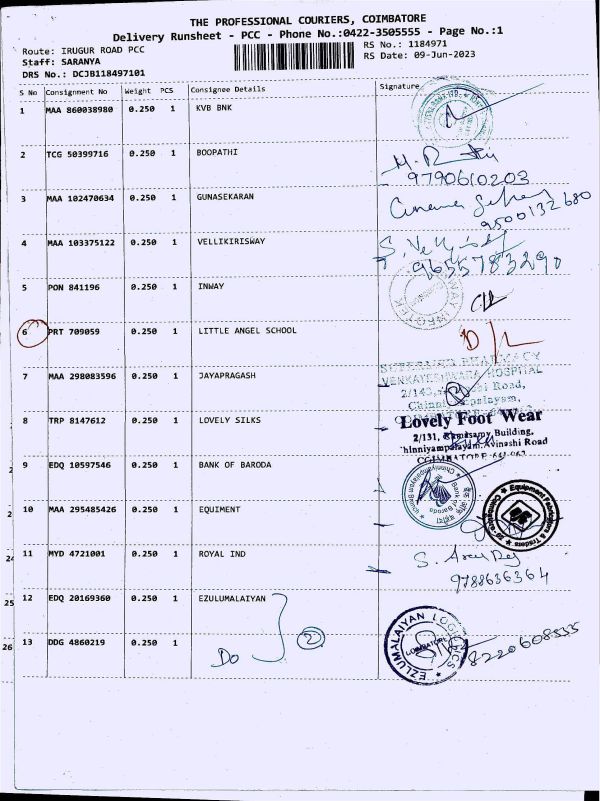 THE PROFESSIONAL COURIERS, COIMBATORE
Delivery Runsheet - PCC - Phone No.:0422-3505555 - Page No.:1
Route: IRUGUR ROAD PCC
RS No.: 1184971
Staff: SARANYA
RS Date: 09-Jun-2023
DRS No.: DCJB118497101
S No Consignment No Weight PCS Consignee Details Signature
1 MAA 860038980 0.250 1 KVB BNK
2 TCG 50399716 0.250 1 BOOPATHI
9790610203
3 MAA 102470634 0.250 1 GUNASEKARAN
9500132680
4 MAA 103375122 0.250 1 VELLIKIRISWAY
9655783290
5 PON 841196 0.250 1 INWAY
6 PRT 709059 0.250 1 LITTLE ANGEL SCHOOL
7 MAA 298083596 0.250 1 JAYAPRAGASH
VENKATESHWARA HOSPITAL
8 TRP 8147612 0.250 1 LOVELY SILKS
Lovely Foot Wear
2/131, Ramasamy Building,
hinniyampalayam, Avinashi Road
COIMBATORE-641 062
9 EDQ 10597546 0.250 1 BANK OF BARODA
Bank of Baroda
10 MAA 295485426 0.250 1 EQUIMENT
Equipment Fabricators & Traders
11 MYD 4721001 0.250 1 ROYAL IND
9788636364
12 EDQ 20169360 0.250 1 EZULUMALAIYAN
25
13 DDG 4860219 0.250 1
26
Do 2
EZLUMALAIYAN LOGISTICS
COIMBATORE
8220608535